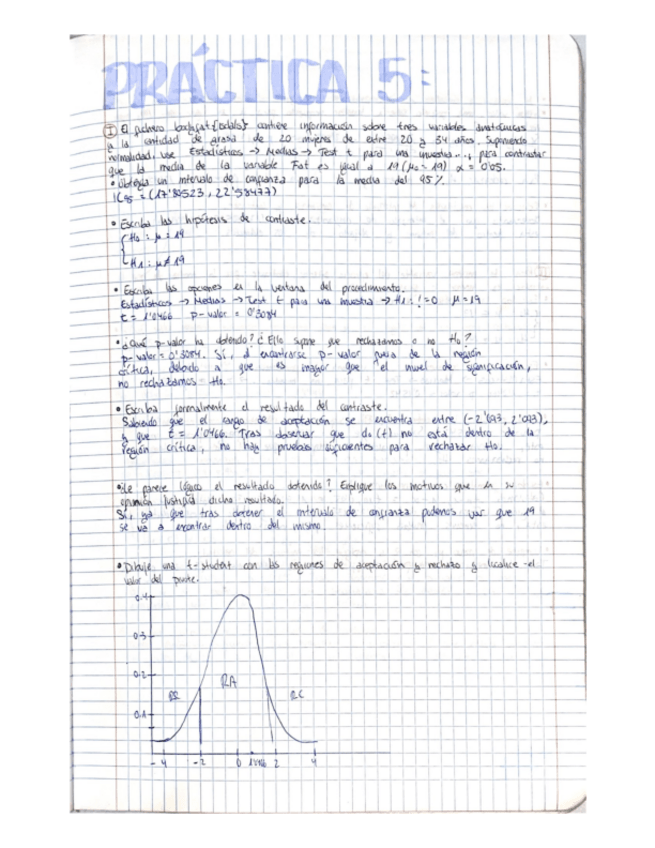 PRÁCTICA 5:
① El fichero bodyfat{isdals} contiene información sobre tres variables anatómicas
y la cantidad de grasa de 20 mujeres de entre 20 y 34 años. Suponiendo
normalidad, use Estadísticos → Medias → Test t para una muestra..., para contrastar
que la media de la variable Fat es igual a 19 (μ₀ = 19) α = 0'05.
• Obtenga un intervalo de confianza para la media del 95%.
= (17'80523, 22'58477)
• Escriba las hipótesis de contraste.
H₀: μ = 19
H₁: μ ≠ 19
• Escriba las opciones en la ventana del procedimiento.
Estadísticos → Medias → Test t para una muestra → H₁: != 0 μ = 19
t = 1'0466 p-valor = 0'3084
• ¿Qué p-valor ha obtenido? ¿Ello supone que rechazamos o no H₀?
p-valor = 0'3084. Sí, al encontrarse p-valor fuera de la región
crítica, debido a que es mayor que el nivel de significación,
no rechazamos H₀.
• Escriba formalmente el resultado del contraste.
Sabiendo que el rango de aceptación se encuentra entre (-2'093, 2'093),
y que t = 1'0466. Tras observar que d₀ (t) no está dentro de la
región crítica, no hay pruebas suficientes para rechazar H₀.
• ¿Le parece lógico el resultado obtenido? Explique los motivos que en su
opinión justifica dicho resultado.
Sí, ya que tras obtener el intervalo de confianza podemos ver que 19
se va a encontrar dentro del mismo.
• Dibuje una t-student con las regiones de aceptación y rechazo y localice el
valor del
0.4
0.3
0.2
RA
RC
0.1
-4 -2 0 1'0466 2 4